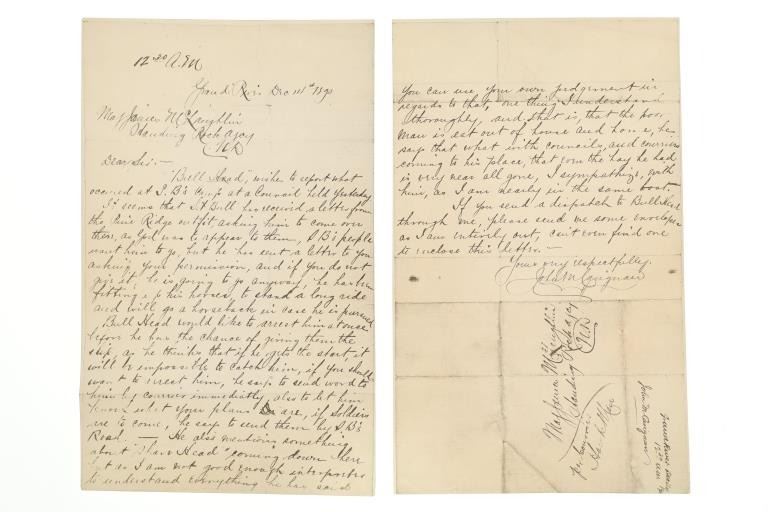 12 30 A.M
Grand Riv. Dec 14th 1890
Maj James McLaughlin
Standing Rock Agcy
N.D
Dear Sir:—
Bull Head, wishes to report what
occured at S.B's Camp at a Council held yesterday
It seems that S. Bull has received a letter from
the Pine Ridge outfit, asking him to come over
there, as God was to appear to them, S.B's people
want him to go, but he has sent a letter to you
asking your permission, and if you do not
give it, he is going to go anyway, he has been
fitting up his horses, to stand a long ride
and will go a horseback in case he is pursued
Bull Head would like to arrest him at once
before he has the chance of giving them the
slip, as he thinks that if he gets the start, it
will be impossible to catch him, if you should
want to arrest him, he says to send word to
him by courier immediately, also to let him
know what your plans are, if soldiers
are to come, he says to send them by S.B's
Road. — He also mentions something
about "Shave Head" coming down here
but as I am not good enough interpreter
to understand everything he has said
you can use your own judgement in
regards to that, one thing I understand
thoroughly, and, that is, that the poor
man is eat out of house and home, he
says that what with councils, and couriers
coming to his place, that even the hay he had
is very near all gone, I sympathize with
him, as I am nearly in the same boat.
If you send a dispatch to Bull Head
through me, please send me some envelopes
as I am entirely out, can't even find one
to inclose this letter.—
Yours very respectfully.
John M Carignan
Maj James McLaughlin
Standing Rock Agcy
N.D
John M Carignan